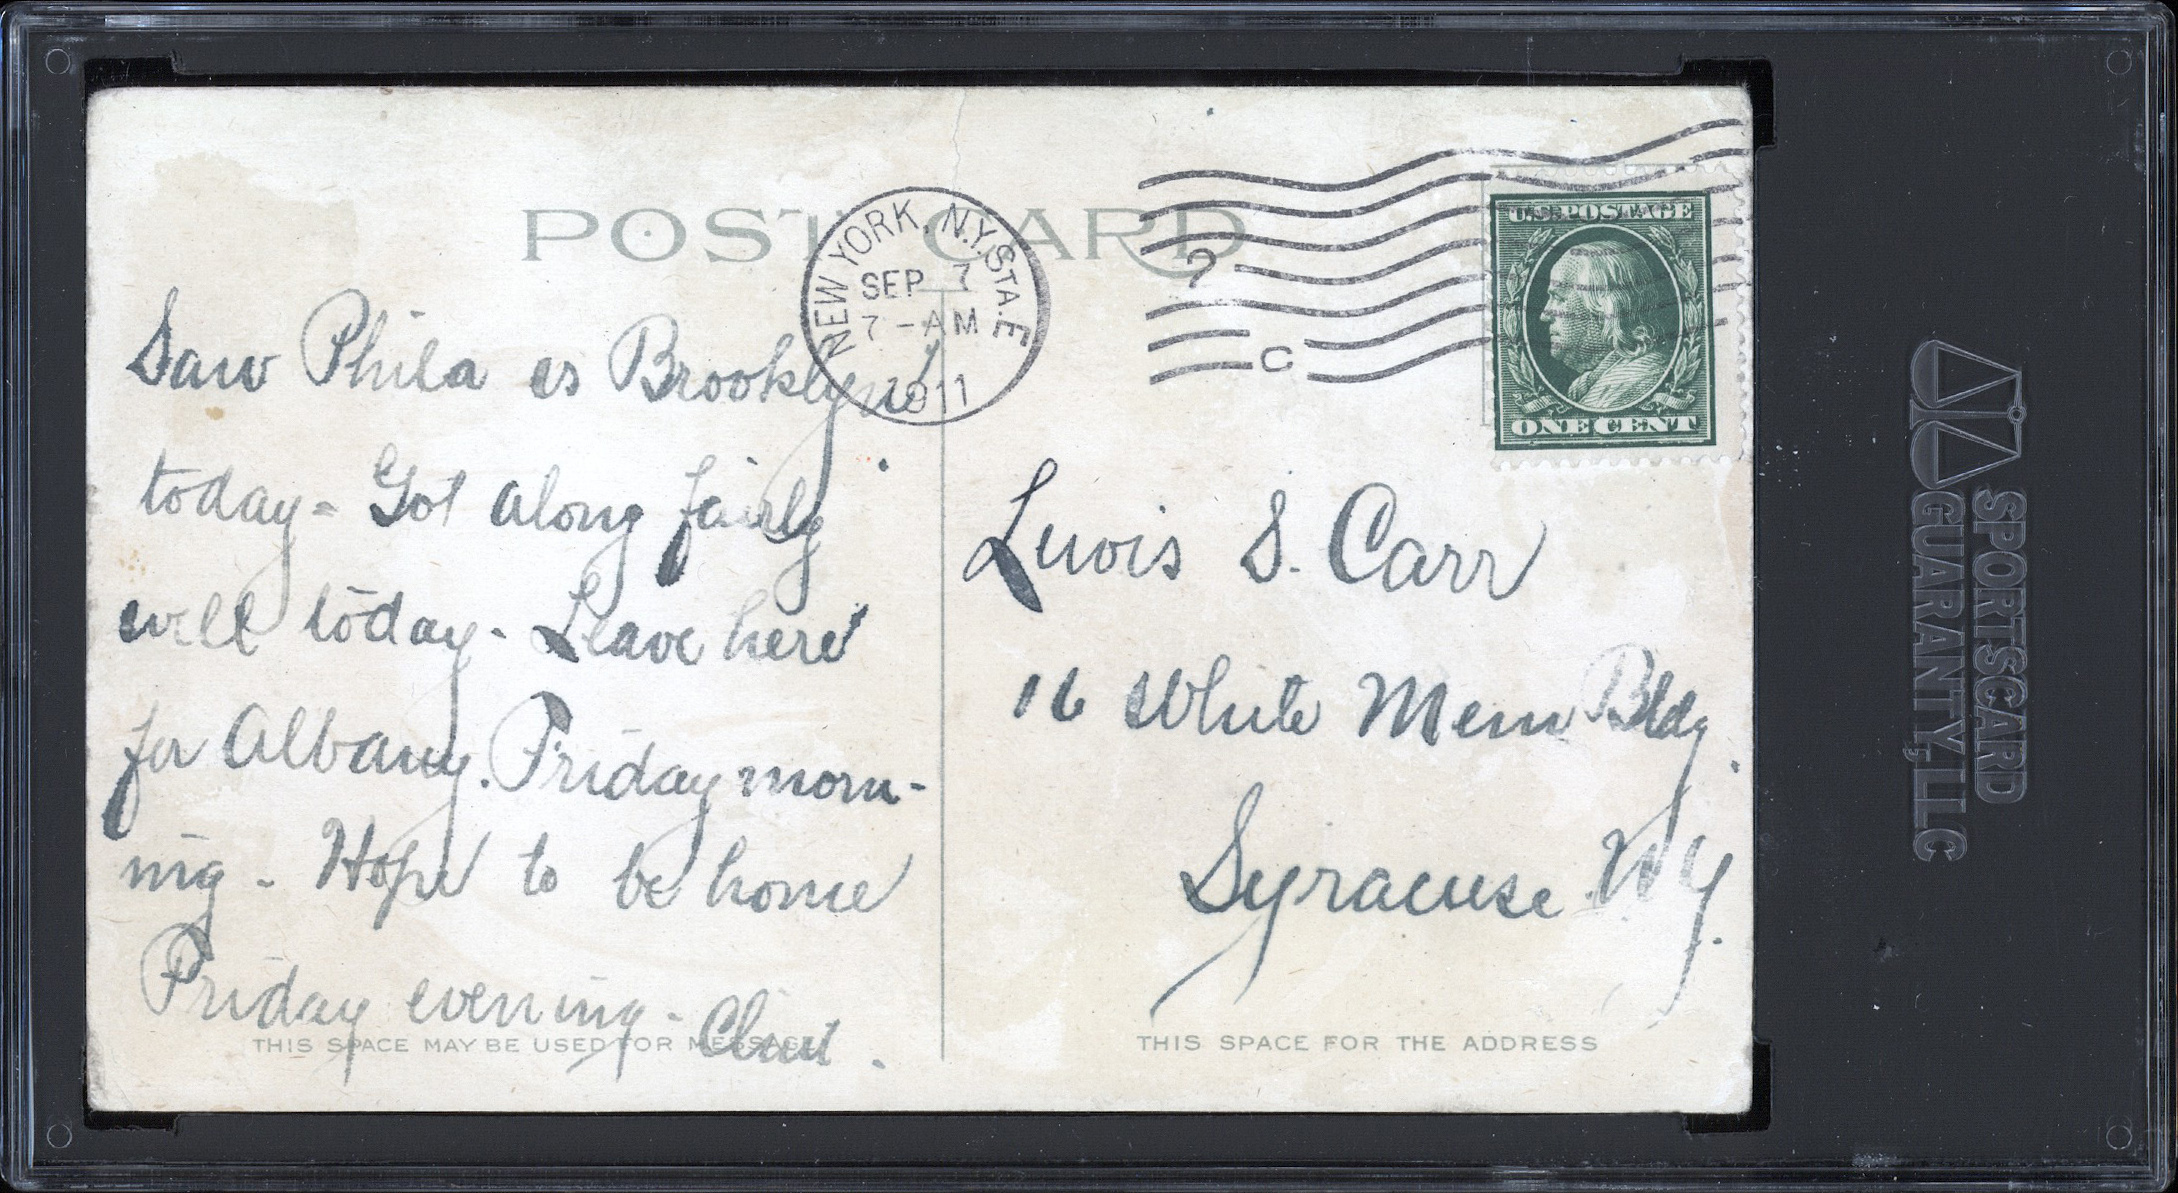 POST CARD
NEW YORK, N.Y. STA. E
SEP 7
7-AM
1911
?
C
U.S. POSTAGE
ONE CENT
Saw Phila vs Brooklyn
today - Got along fairly
well today - Leave here
for Albany. Friday morn-
ing - Hope to be home
Friday evening -
THIS SPACE MAY BE USED FOR MESSAGE
Lewis S. Carr
16 White Mem Bldg.
Syracuse N.Y.
THIS SPACE FOR THE ADDRESS
SPORTSCARD
GUARANTY, LLC